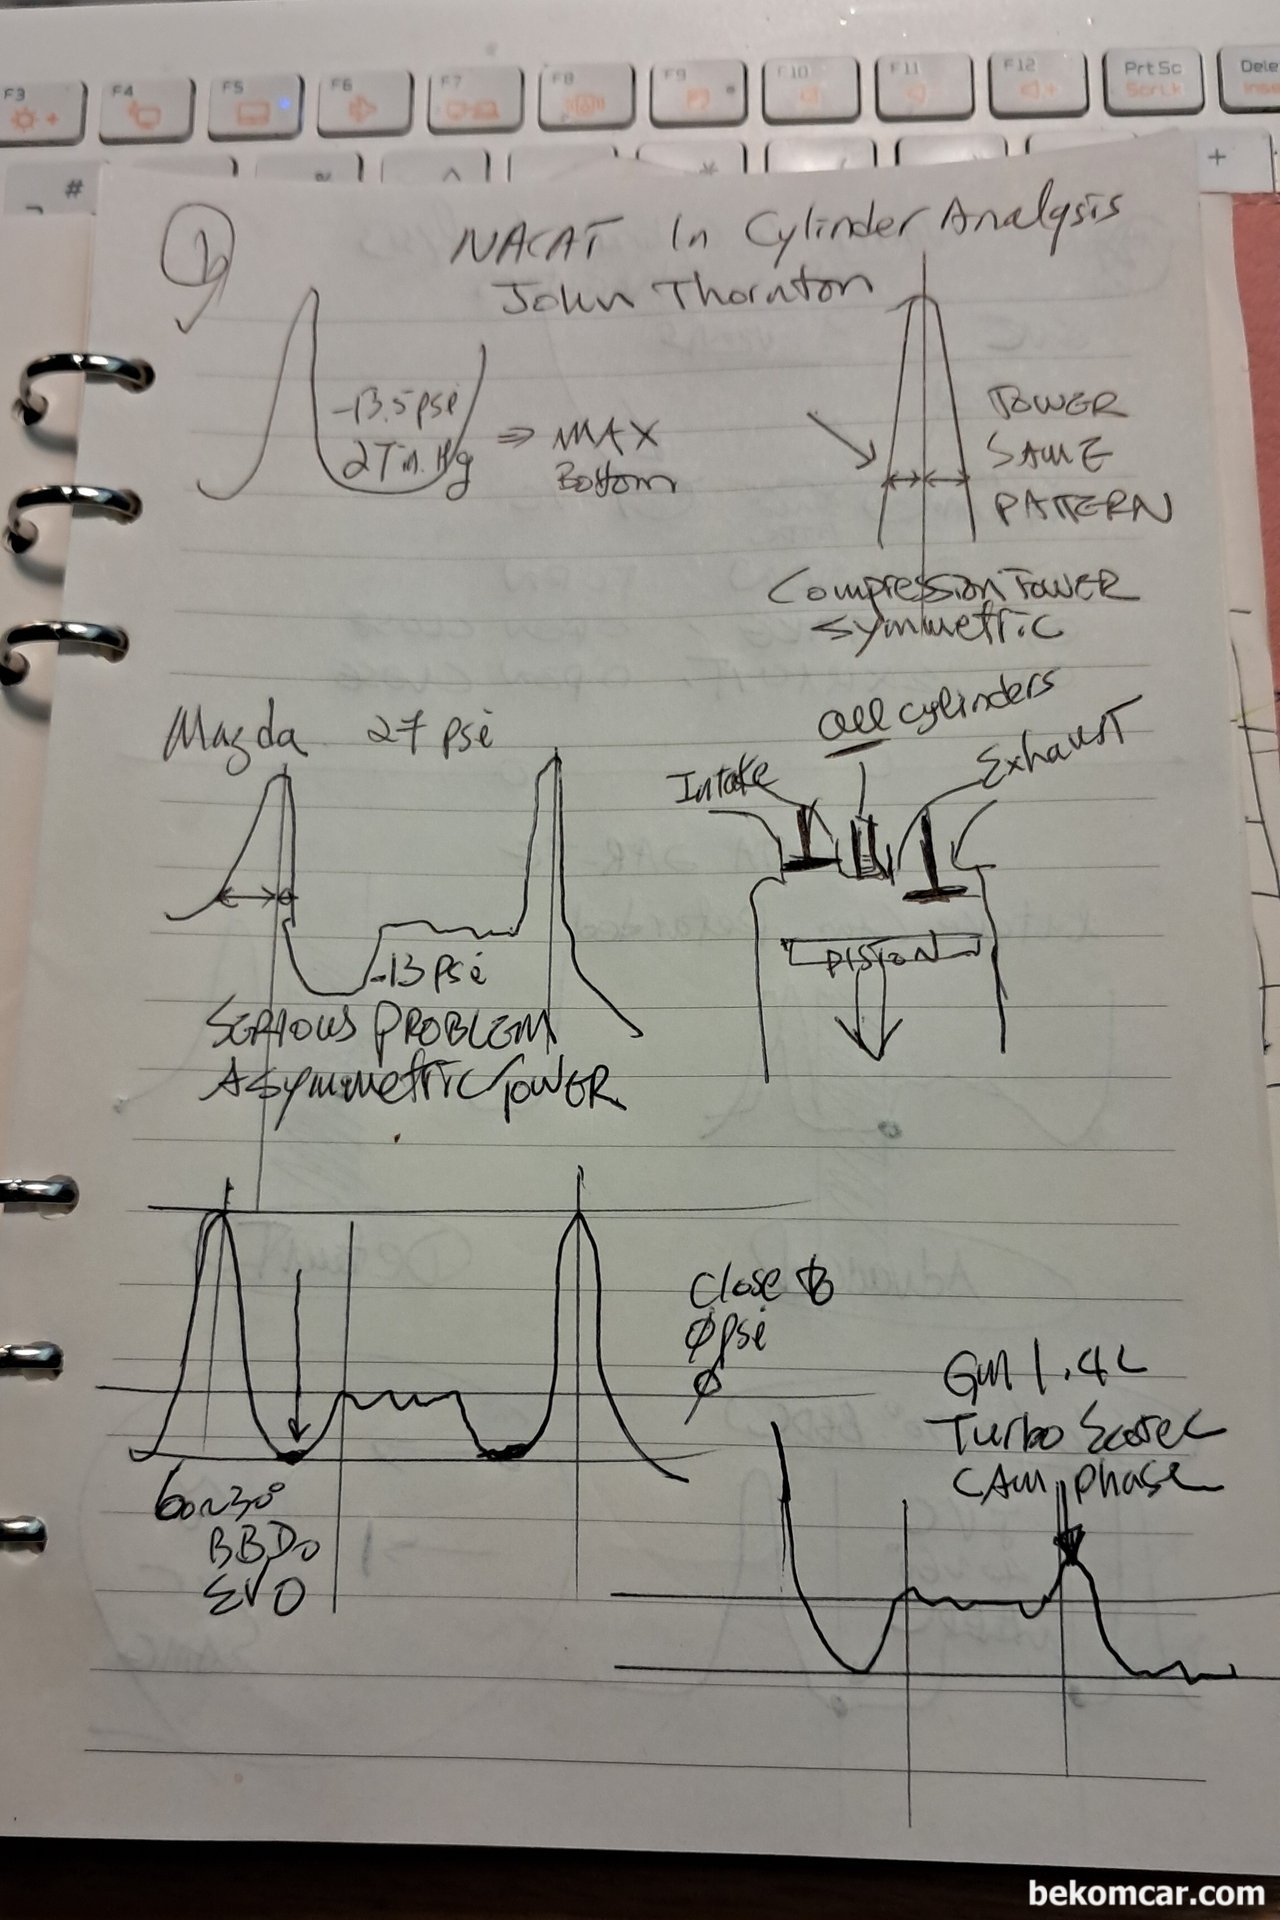 F3
F4
F5
F6
F7
F8
F9
F10
F11
F12
Prt Sc
ScrLk
Dele
Inse
#
^
*
+
NACAT In Cylinder Analysis
John Thornton
-13.5 psi
27 in. Hg
⇒ MAX
Bottom
TOWER
SAME
PATTERN
Compression TOWER
Symmetric
Mazda 27 psi
-13 psi
SERIOUS PROBLEM
Asymmetric TOWER
All cylinders
Intake
Exhaust
PISTON
Close to
Ø psi
Ø
60~30°
BBDC
EVO
GM 1.4L
Turbo
CAM phase
bekomcar.com